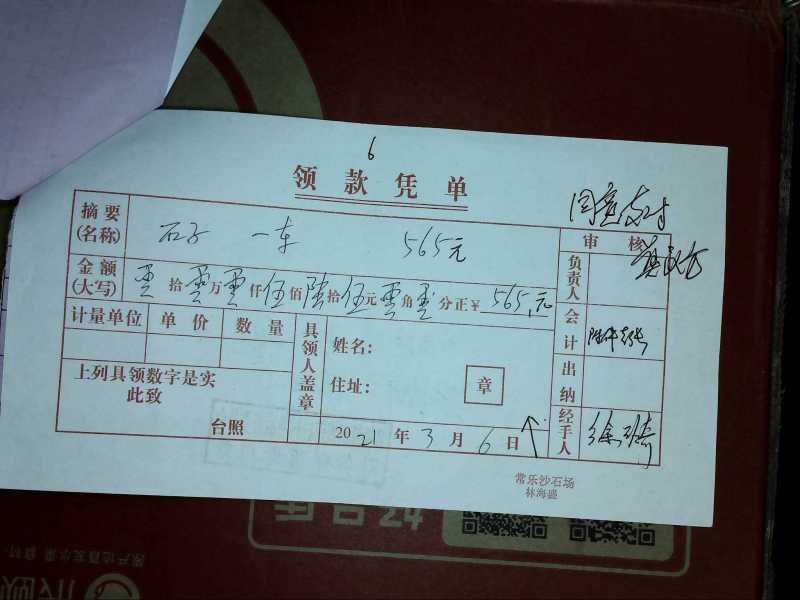 6
领款凭单
同意支付
摘要(名称) 石子 一车 565元
审核
金额(大写) 零拾零万零仟伍佰陆拾伍元零角零分正¥565.元
负责人
计量单位 单价 数量
具领人盖章
姓名:
会计
住址: 章
上列具领数字是实
此致
台照
出纳
2021年3月6日
经手人
常乐沙石场
林海盛